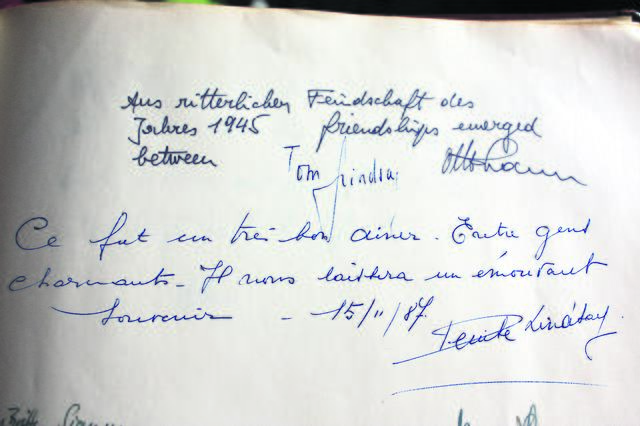 Aus ritterlicher Feindschaft des
Jahres 1945 friendships emerged
between Tom Lindsay Otto
Ce fut un très bon diner. Entre gens
charmants - Il nous laissera un émouvant
souvenir - 15/11/87.
Lindsay